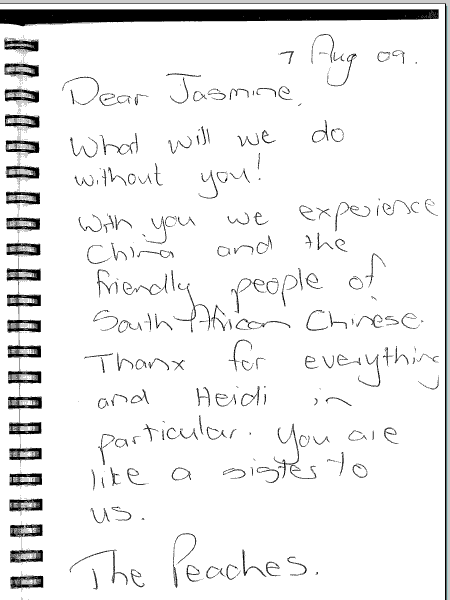 7 Aug 09.
Dear Jasmine,
What will we do
without you!
With you we experience
China and the
friendly people of
South African Chinese.
Thanx for everything
and Heidi in
particular. You are
like a sister to
us.
The Peaches.